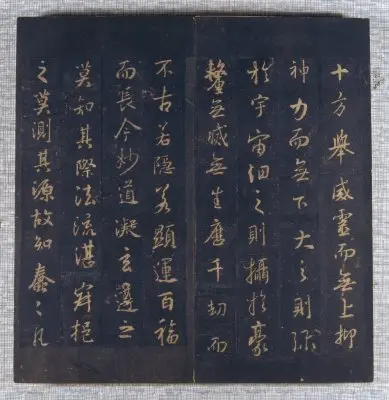 十方舉威靈而無上抑
神力而無下大之則彌
於宇宙細之則攝於豪
釐無滅無生歷千劫而
不古若隱若顯運百福
而長今妙道凝玄遵之
莫知其際法流湛寂挹
之莫測其源故知蠢蠢凡